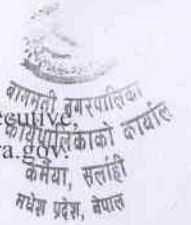 बागमती नगरपालिका
ecutive,
कार्यपालिकाको कार्यालय
ra.gov.
कर्मैया, सर्लाही
मधेश प्रदेश, नेपाल